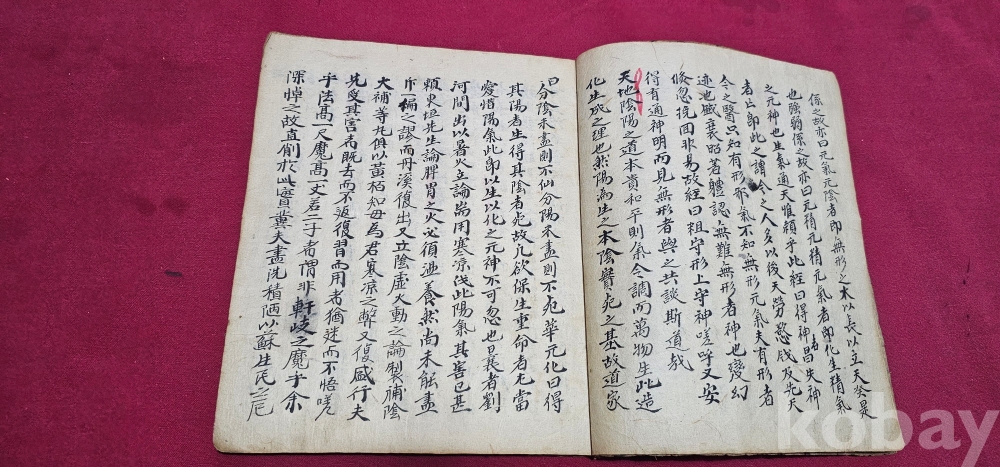 係之故亦曰元氣元陰者即無形之水以長以立天癸是
也強弱係之故亦曰元精元精元氣者即化生精氣
之元神也生氣通天惟賴乎此經曰得神者昌失神
者亡即此之謂今之人多以後天勞慾戕及先天
今之醫只知有形邪氣不知無形元氣夫有形者
迹也盛衰昭著體認無難無形者神也變幻
倏忽挽回非易故經曰粗守形上守神嗟呼又安
得有通神明而見無形者與之共談斯道哉
天地陰陽之道本貴和平則氣令調而萬物生此造
化生成之理也然陽為生之本陰實死之基故道家
曰分陰未盡則不仙分陽未盡則不死華元化曰得
其陽者生得其陰者死故凡欲保生重命者尤當
愛惜陽氣此即以生以化之元神不可忽也曩者劉
河間出以暑火立論耑用寒涼伐此陽氣其害已甚
賴東垣先生論脾胃之火必須溫養然尚未能盡
斥一偏之謬而丹溪復出又立陰虛火動之論製補陰
大補等丸俱以黃栢知母為君寒涼之弊又復盛行夫
先受其害者既去而不返復習而用者猶迷而不悟嗟
乎法高一尺魔高一丈若二子者謂非軒岐之魔乎余
深悼之故直削於此實冀夫盡洗積陋以蘇生民之厄
kobay